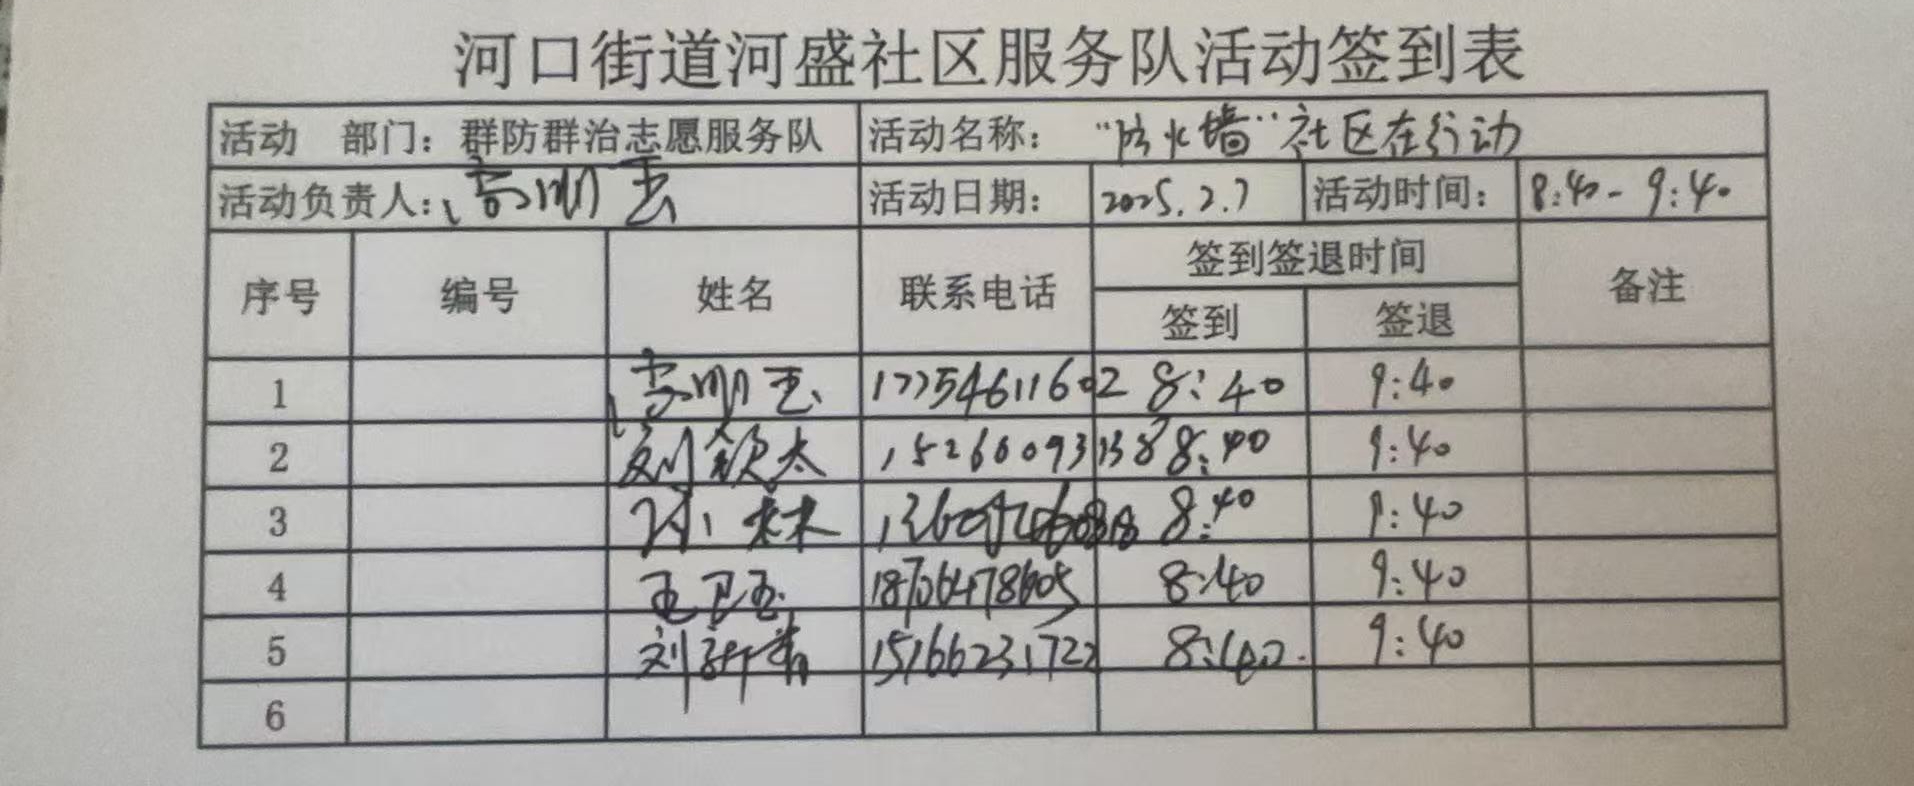 河口街道河盛社区服务队活动签到表
活动 部门：群防群治志愿服务队 活动名称："防火墙"社区在行动
活动负责人： 活动日期： 2025.2.7 活动时间： 8:40-9:40
序号 编号 姓名 联系电话 签到签退时间 备注
签到 签退
1 17754611602 8:40 9:40
2 刘钦太 8:40 9:40
3 8:40 9:40
4 王卫玉 18706478605 8:40 9:40
5 刘新青 15166231722 8:40 9:40
6